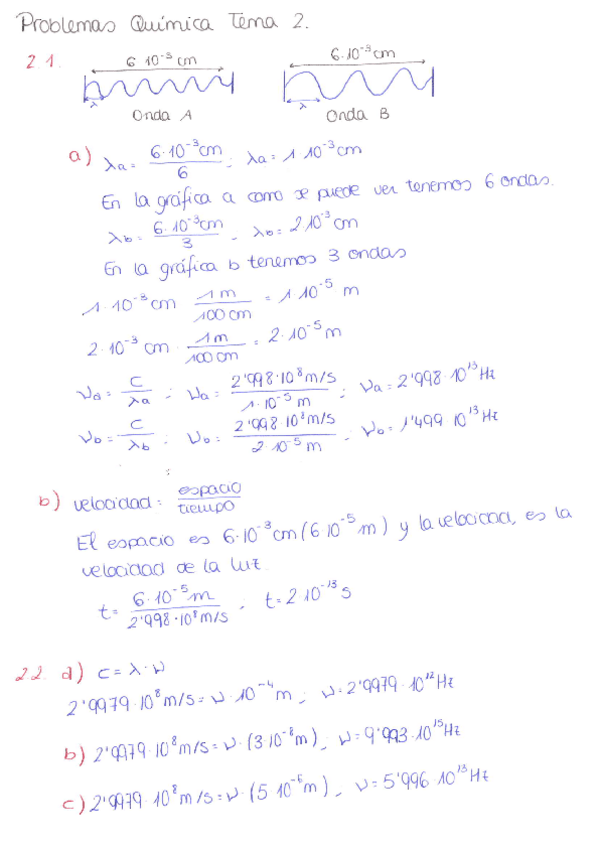 Problemas Química Tema 2.
2.1. 6·10⁻³cm 6·10⁻³cm
λ λ
Onda A Onda B
a) λa = 6·10⁻³cm/6 ; λa = 1·10⁻³cm
En la gráfica a como se puede ver tenemos 6 ondas.
λb = 6·10⁻³cm/3 ; λb = 2·10⁻³cm
En la gráfica b tenemos 3 ondas
1·10⁻³cm 1m/100cm = 1·10⁻⁵ m
2·10⁻³ cm · 1m/100cm = 2·10⁻⁵ m
νa = c/λa ; νa = 2'998·10⁸m/s / 1·10⁻⁵m ; νa = 2'998·10¹³Hz
νb = c/λb ; νb = 2'998·10⁸m/s / 2·10⁻⁵m ; νb = 1'499·10¹³Hz
b) velocidad: espacio/tiempo
El espacio es 6·10⁻³cm (6·10⁻⁵m) y la velocidad, es la
velocidad de la luz.
t = 6·10⁻⁵m / 2'998·10⁸m/s ; t = 2·10⁻¹³ s
2.2. a) c = λ·ν
2'9979·10⁸m/s = ν·10⁻⁴m ; ν = 2'9979·10¹²Hz
b) 2'9979·10⁸m/s = ν·(3·10⁻⁸m) ; ν = 9'993·10¹⁵Hz
c) 2'9979·10⁸m/s = ν·(5·10⁻⁶m) ; ν = 5'996·10¹³Hz